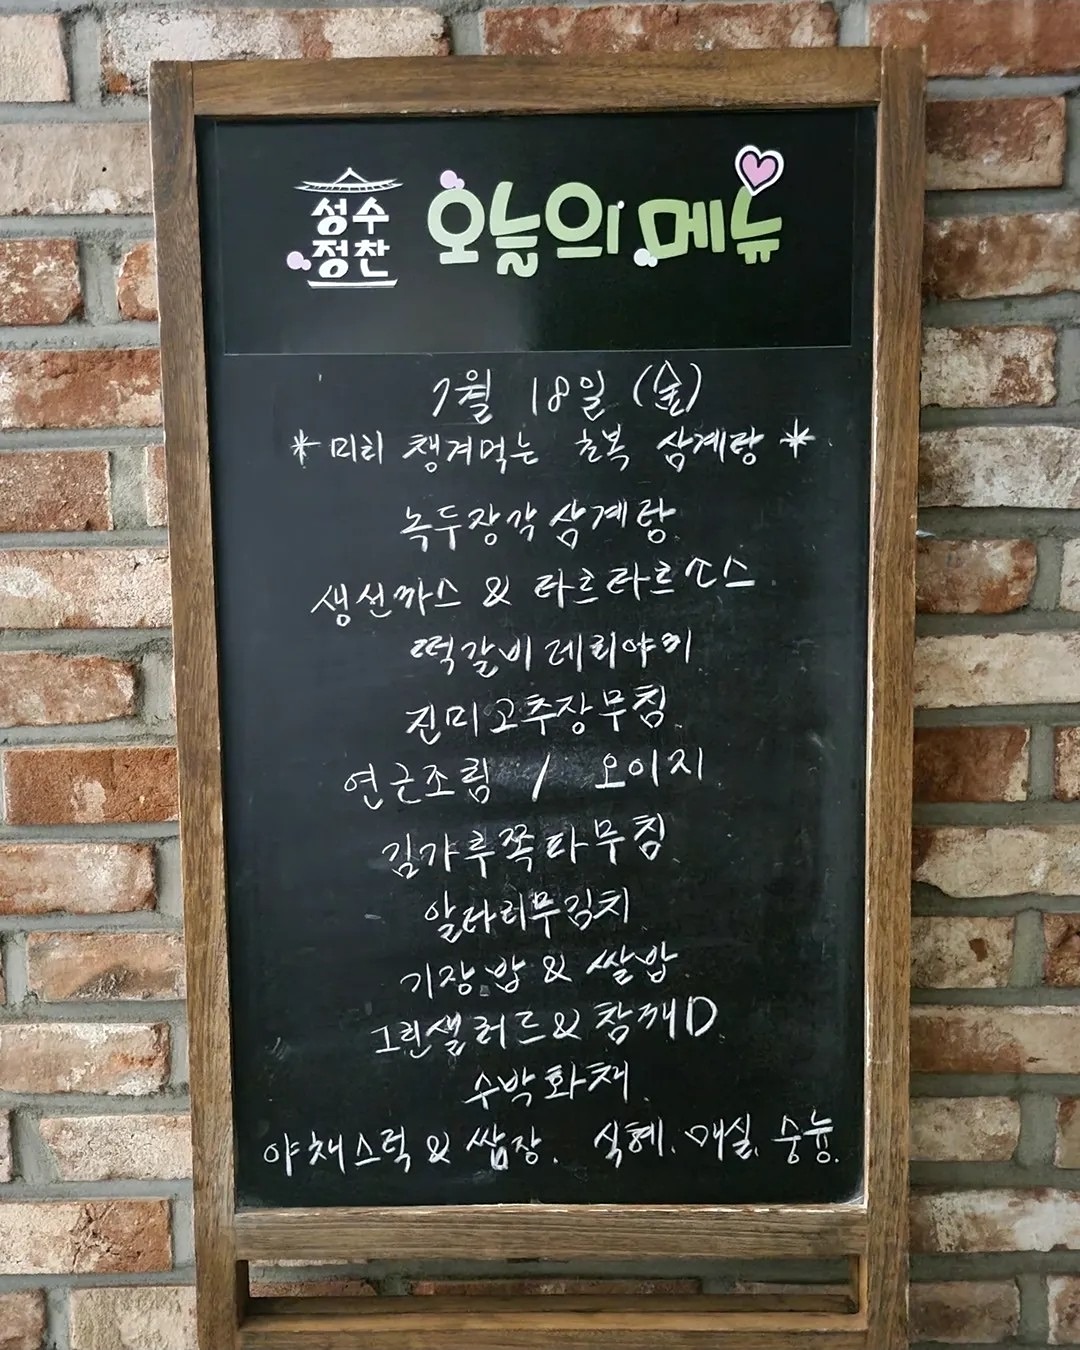 성수
정찬
오늘의 메뉴
7월 18일 (金)
* 미리 챙겨먹는 초복 삼계탕 *
녹두장각삼계탕
생선까스 & 타르타르소스
떡갈비데리야끼
진미고추장무침
연근조림 / 오이지
김가루쪽파무침
알타리무김치
기장밥 & 쌀밥
그린샐러드 & 참깨D
수박화채
야채스틱 & 쌈장. 식혜. 매실. 숭늉.